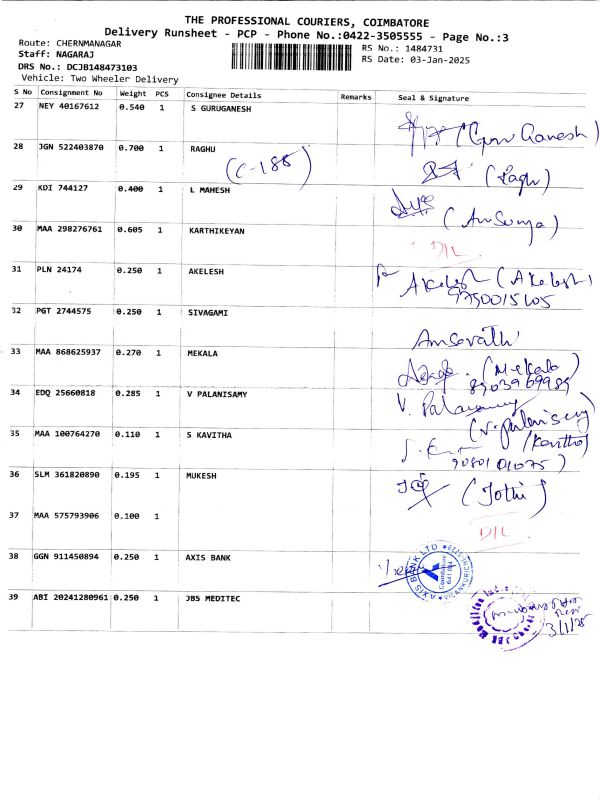 THE PROFESSIONAL COURIERS, COIMBATORE
Delivery Runsheet - PCP - Phone No.:0422-3505555 - Page No.:3
Route: CHERNMANAGAR
RS No.: 1484731
Staff: NAGARAJ
RS Date: 03-Jan-2025
DRS No.: DCJB148473103
Vehicle: Two Wheeler Delivery
S No Consignment No Weight PCS Consignee Details Remarks Seal & Signature
27 NEY 40167612 0.540 1 S GURUGANESH
(Guru Ganesh)
28 JGN 522403870 0.700 1 RAGHU
(C-188) (Raghu)
29 KDI 744127 0.400 1 L MAHESH
(Ansunya)
30 MAA 298276761 0.605 1 KARTHIKEYAN
D/L
31 PLN 24174 0.250 1 AKELESH
Akelesh (Akelesh)
9750015605
32 PGT 2744575 0.250 1 SIVAGAMI
33 MAA 868625937 0.270 1 MEKALA
(Mekala)
8903969989
34 EDQ 25660818 0.285 1 V PALANISAMY
V. Palanisamy
(V. Palanisamy)
35 MAA 100764270 0.110 1 S KAVITHA
(Kavitha)
9080101075)
36 SLM 361820890 0.195 1 MUKESH
(Jothi)
37 MAA 575793906 0.100 1
D/L
38 GGN 911450894 0.250 1 AXIS BANK
AXIS BANK LTD
Coimbatore
39 ABI 20241280961 0.250 1 JBS MEDITEC
3/1/25